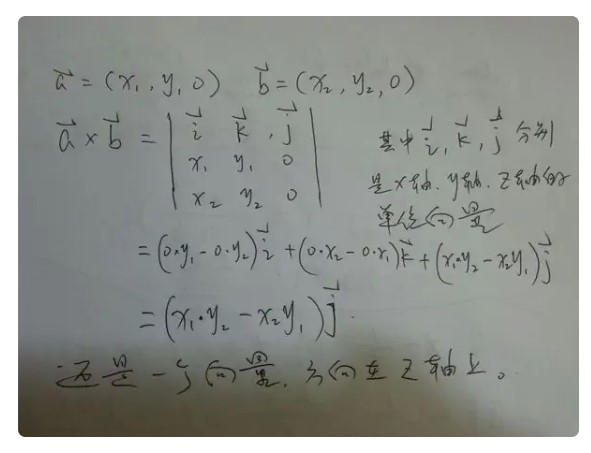 a⃗ = (x₁, y₁, 0)  b⃗ = (x₂, y₂, 0)
a⃗ × b⃗ = | i⃗  k⃗, j⃗ |
x₁  y₁  0
x₂  y₂  0
其中 i⃗, k⃗, j⃗ 分别
是x轴、y轴、z轴的
单位向量
= (0·y₁ - 0·y₂) i⃗ + (0·x₂ - 0·x₁) k⃗ + (x₁·y₂ - x₂y₁) j⃗
= (x₁·y₂ - x₂y₁) j⃗.
还是一个向量. 方向在z轴上。